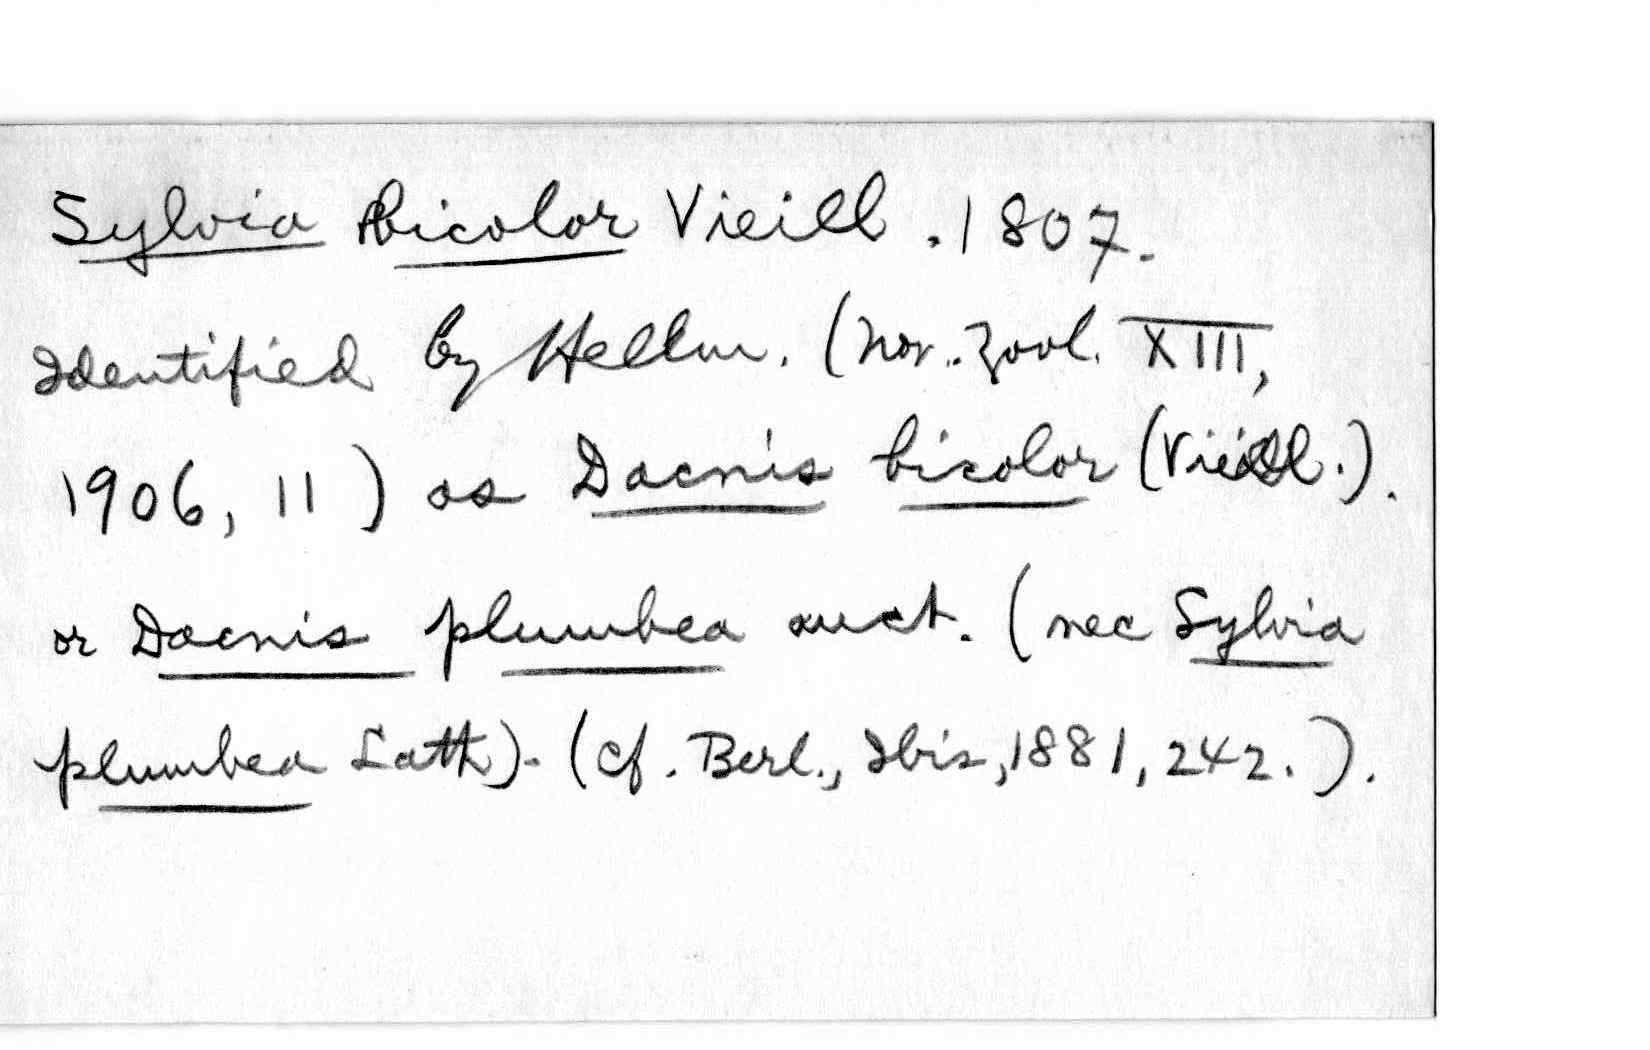 Sylvia bicolor Vieill. 1807.
Identified by Hellm. (Nov. Zool. XIII,
1906, 11) as Dacnis bicolor (Vieill.).
or Dacnis plumbea auct. (nec Sylvia
plumbea Lath). (cf. Berl., Ibis, 1881, 242.).